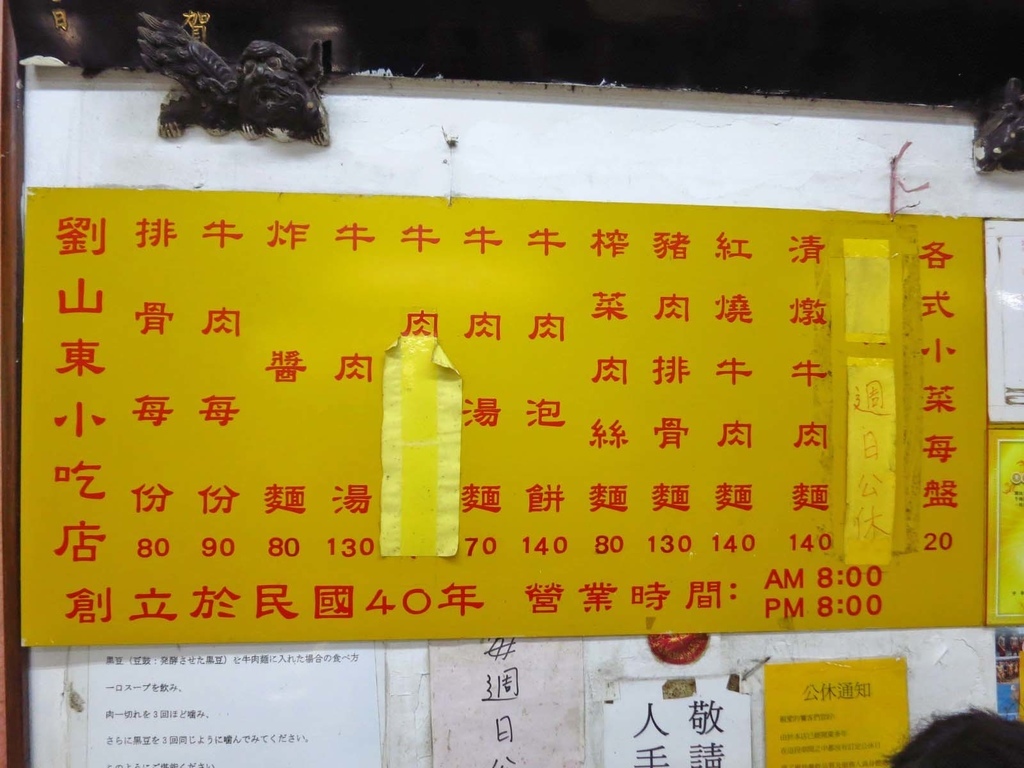 賀
日
各式小菜每盤20
週日公休
清燉牛肉麵140
紅燒牛肉麵140
豬肉排骨麵130
榨菜肉絲麵80
牛肉泡餅140
牛肉湯麵70
牛肉
牛肉湯130
炸醬麵80
牛肉每份90
排骨每份80
劉山東小吃店
創立於民國40年 營業時間: AM 8:00
PM 8:00
黒豆(豆鼓:発酵させた黒豆)を牛肉麺に入れた場合の食べ方
一口スープを飲み、
肉一切れを3回ほど噛み、
さらに黒豆を3回同じように噛んでみてください。
每週日公
敬請
人手
公休通知